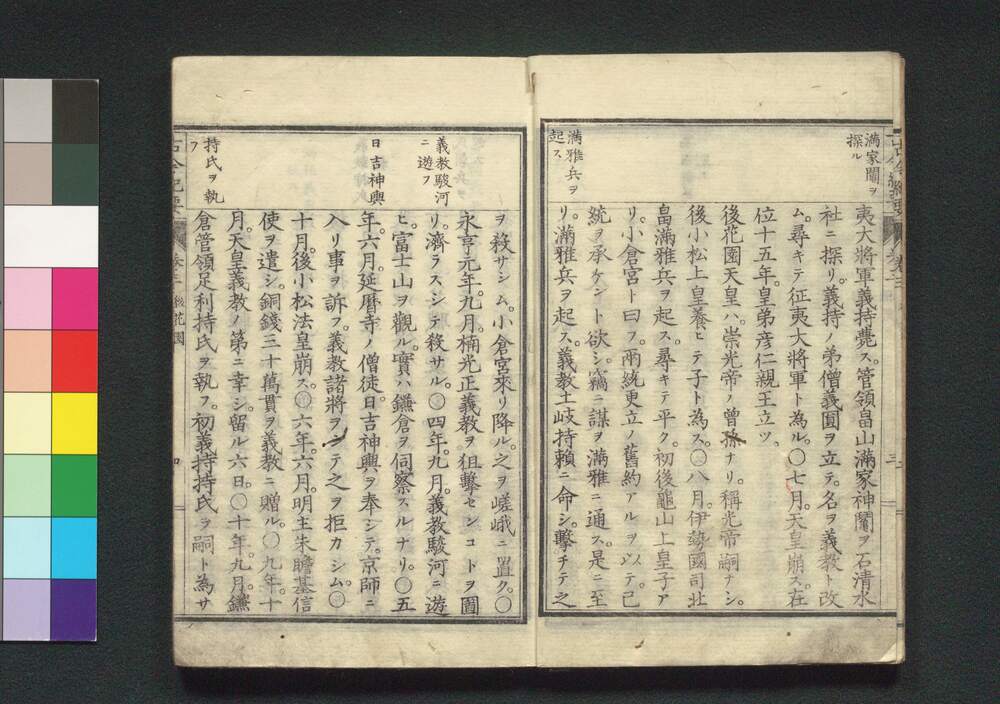 満家鬮ヲ
探ル
夷大將軍義持薨ス。管領畠山滿家神鬮ヲ石清水
社ニ探リ。義持ノ弟僧義圓ヲ立テ。名ヲ義教ト改
ム。尋キテ征夷大將軍ト為ル。〇七月。天皇崩ス。在
位十五年。皇弟彦仁親王立ツ。
後花園天皇ハ。崇光帝ノ曾孫ナリ。稱光帝嗣ナシ。
後小松上皇養ヒテ子ト為ス。〇八月。伊勢國司北
畠滿雅兵ヲ起ス。尋キテ平ク。初後龜山上皇子ア
リ。小倉宮ト曰フ。兩統更立ノ舊約アルヲ以テ。己
統ヲ承ケント欲シ。竊ニ謀ヲ滿雅ニ通ス。是ニ至
リ。滿雅兵ヲ起ス。義教土岐持頼ニ命シ。擊チテ之
満雅兵ヲ
起ス
ヲ殺サシム。小倉宮來リ降ル。之ヲ嵯峨ニ置ク。〇
永享元年。九月。楠光正義教ヲ狙擊センコトヲ圖
リ。濟ラスシテ殺サル。〇四年。九月。義教駿河ニ遊
ヒ。富士山ヲ觀ル。實ハ鎌倉ヲ伺察スルナリ。〇五
年。六月。延暦寺ノ僧徒。日吉神輿ヲ奉シテ。京師ニ
入リ事ヲ訴フ。義教諸將ヲシテ之ヲ拒カシム。〇
十月。後小松法皇崩ス。〇六年。六月。明主朱瞻基信
使ヲ遣シ。銅錢三十萬貫ヲ義教ニ贈ル。〇九年。十
月。天皇義教ノ第ニ幸シ。留ル六日。〇十年。九月。鎌
倉管領足利持氏ヲ執フ。初義持持氏ヲ嗣ト為サ
義教駿河
ニ遊フ
日吉神輿
持氏ヲ執
フ